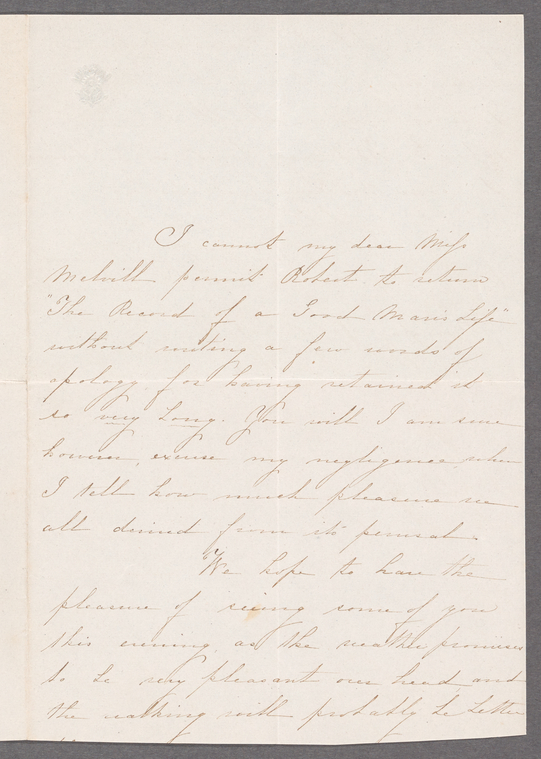 I cannot my dear Miss
Melvill permit Robert to return
"The Record of a Good Man's Life"
without writing a few words of
apology for having retained it
so very long. You will I am sure
however, excuse my negligence when
I tell how much pleasure we
all derived from its perusal.
We hope to have the
pleasure of seeing some of you
this evening, as the weather promises
to be very pleasant over head, and
the walking will probably be better